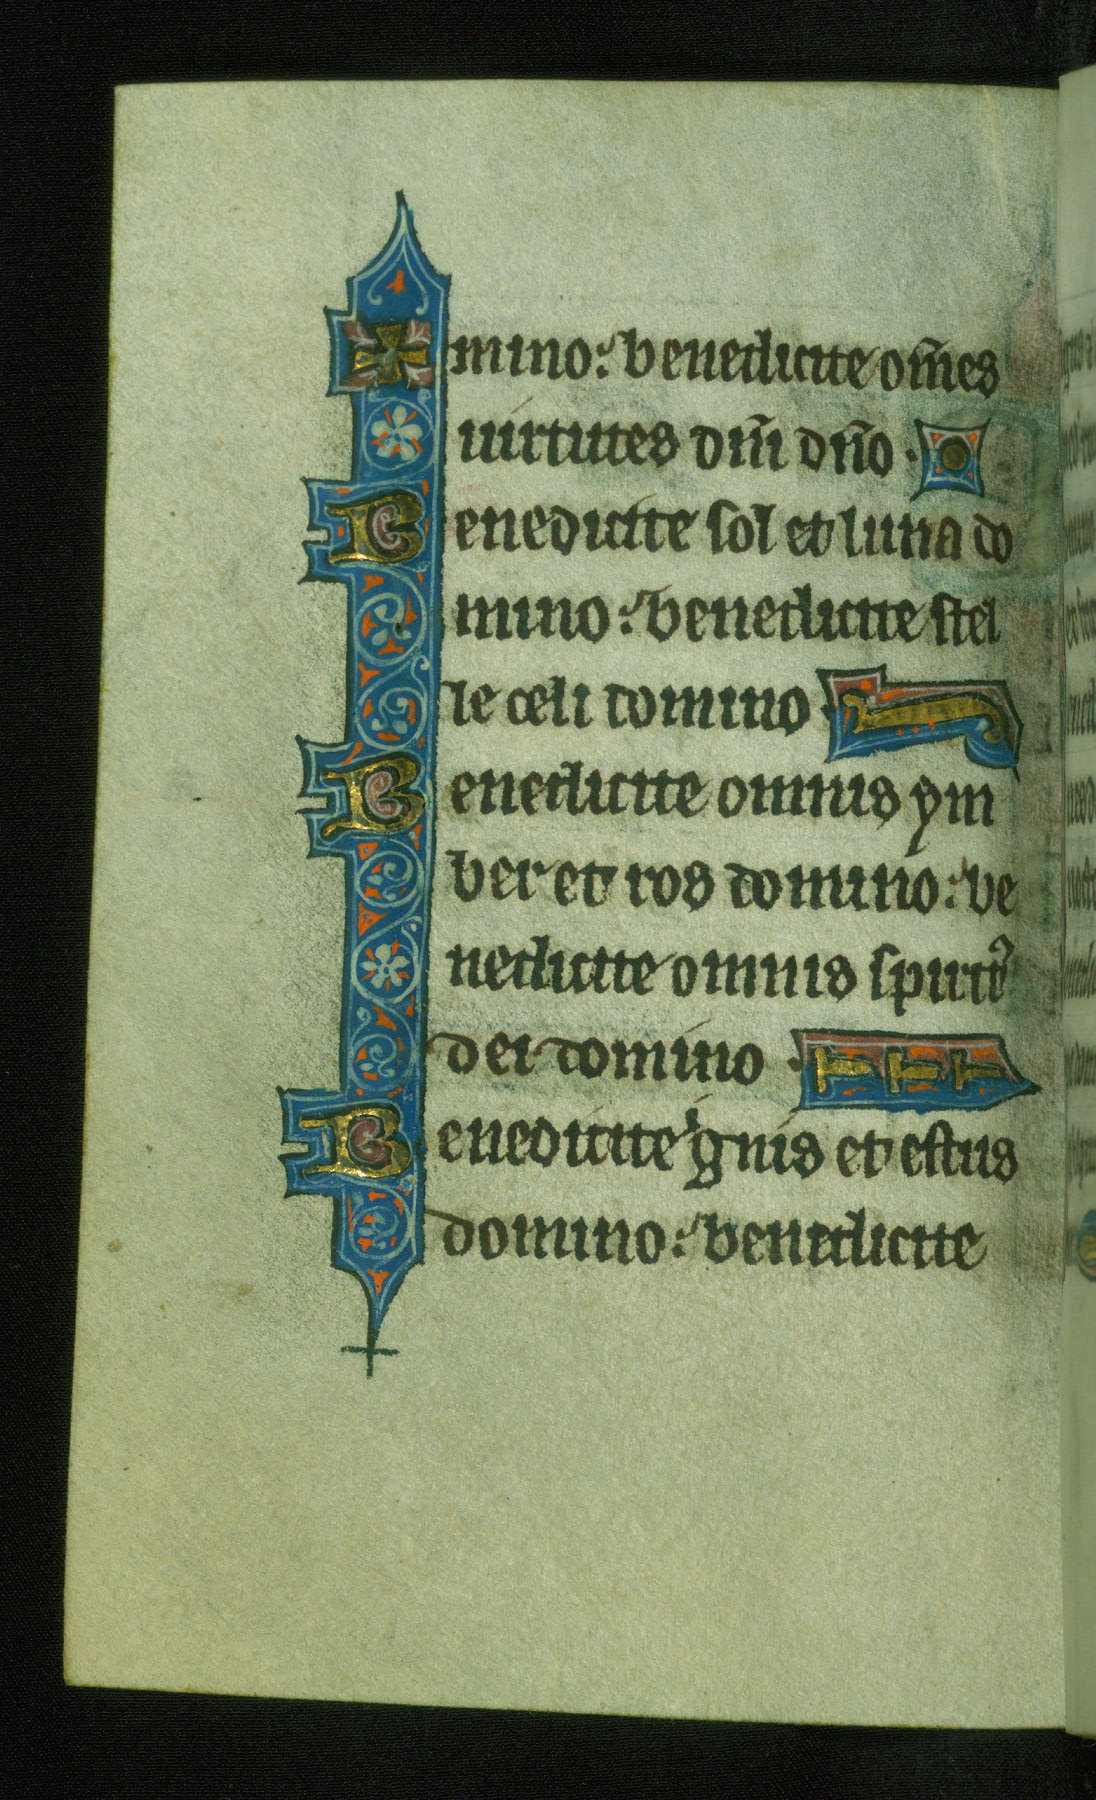 mino: benedicite om̄es
uirtutes dn̄i dn̄o.
Benedicite sol et luna do
mino: benedicite stel
le celi domino.
Benedicite omnis ym
ber et ros domino: be
nedicite omnis spiritꝰ
dei domino.
Benedicite ignis et estus
domino: benedicite